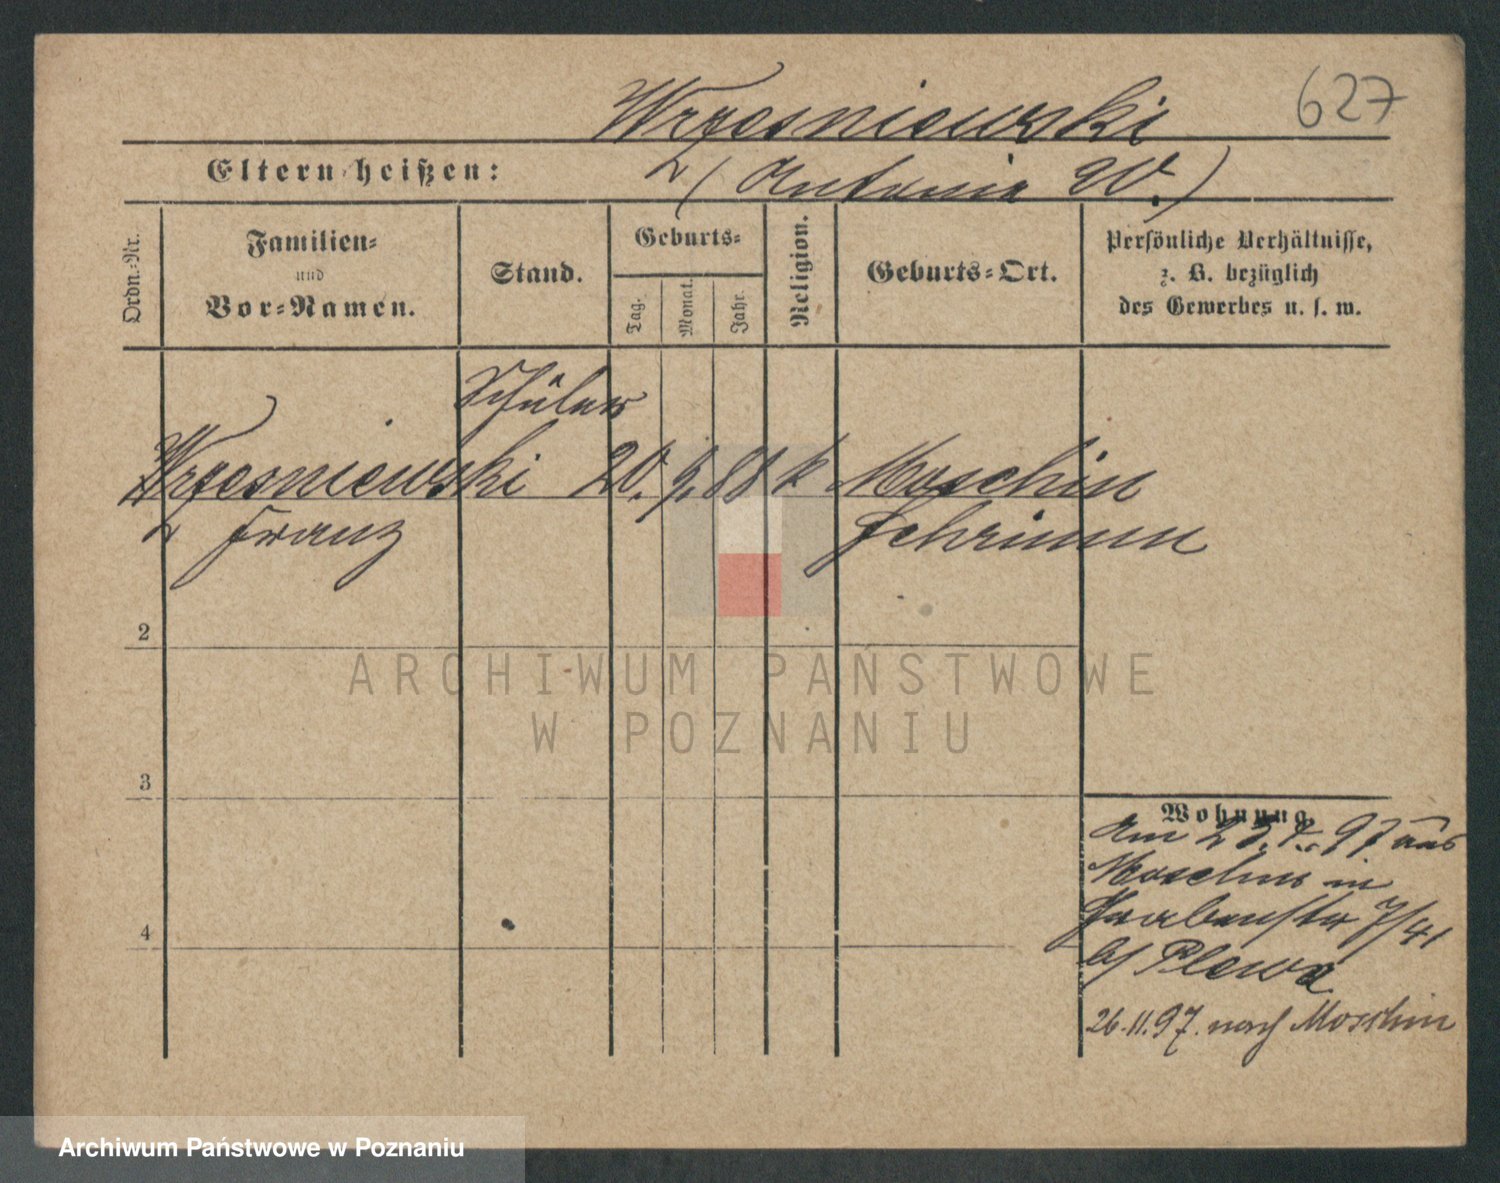 627
Wrzesniewski
Eltern heißen:
(Antonie W.)
Ordn.-Nr.
Familien-
und
Vor-Namen.
Stand.
Geburts-
Tag.
Monat.
Jahr.
Religion.
Geburts-Ort.
Persönliche Verhältnisse,
z. B. bezüglich
des Gewerbes u. s. w.
Schüler
Wrzesniewski 20. 9. 88 k Moschin
Franz Schrimm
2
3
4
Wohnung.
Am 97 aus
Moschin in
Grabenstr 7/41
b/ Plewa
26.11.97. nach Moschin
ARCHIWUM PAŃSTWOWE
W POZNANIU
Archiwum Państwowe w Poznaniu